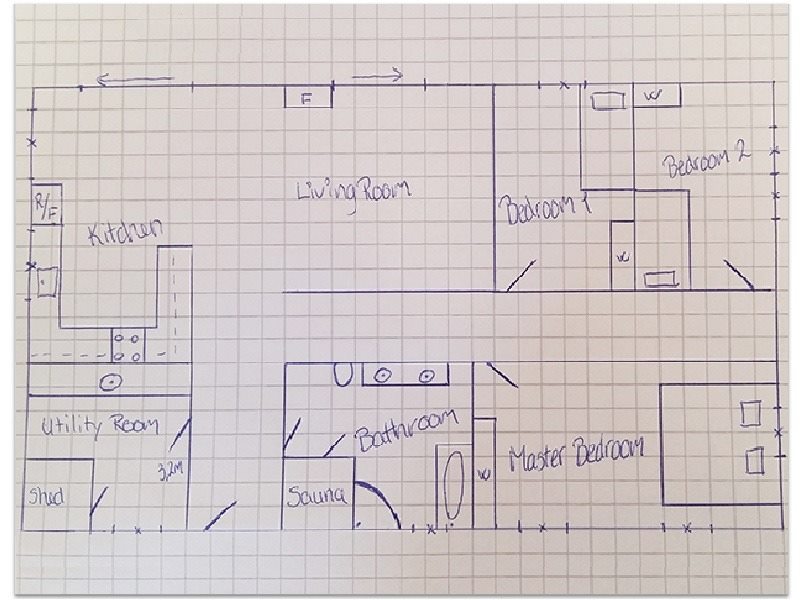 F
W
R/F
Kitchen
Living Room
Bedroom 1
Bedroom 2
W
Utility Room
3,2M
Shed
Bathroom
Sauna
W
Master Bedroom